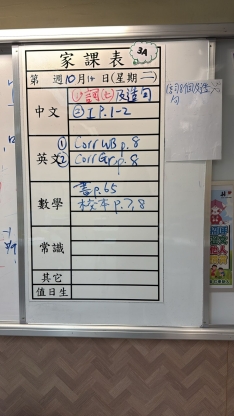 家課表 3A
第 週10月14日(星期二)
中文 ①詞(七)及造句
②工P.1-2
英文 ① Corr WB p.8
② Corr Gr p.8
數學 書p.65
校本p.7,8
常識
其它
值日生